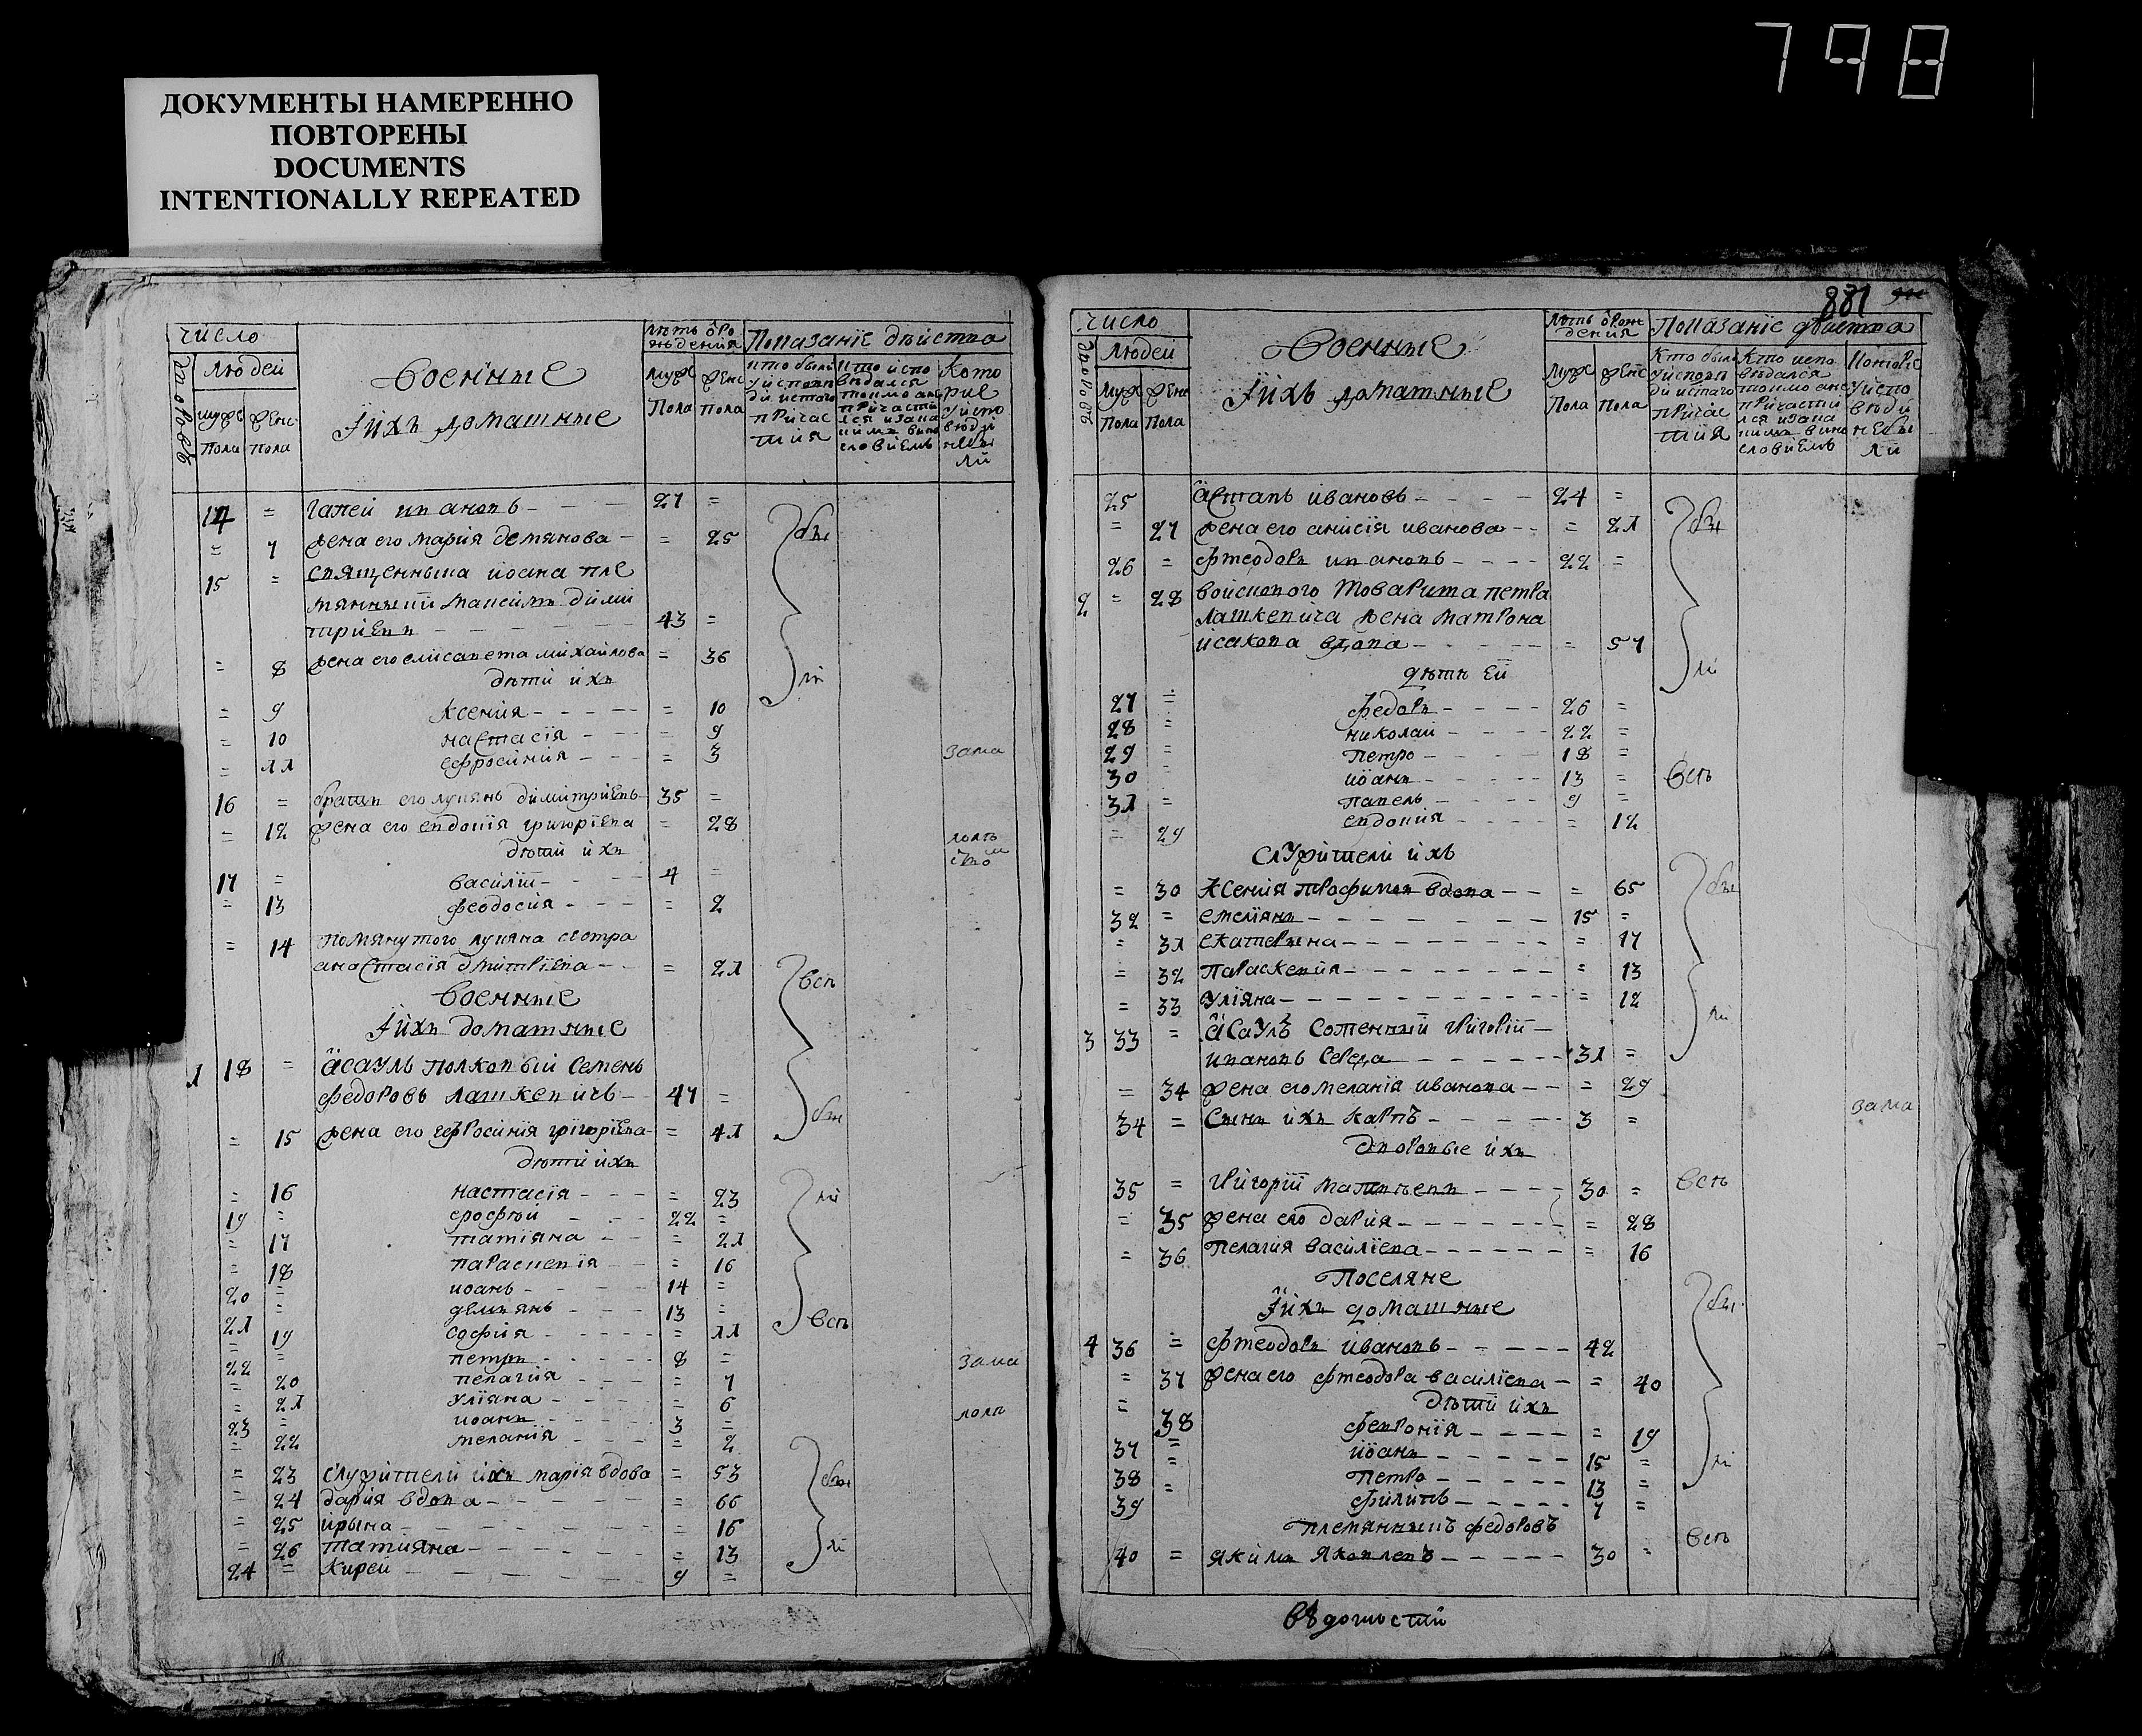 798
ДОКУМЕНТЫ НАМЕРЕННО
ПОВТОРЕНЫ
DOCUMENTS
INTENTIONALLY REPEATED
число
дворовъ
людей
муж
пола
женс
пола
военные
и ихъ домашные
лѣтъ ѿро
ждения
муж
пола
женс
пола
Показание дѣиства
кто были
у испове
ди и стаго
причас
тия
кто испо
вѣдался
токмо а не
причасти
лся и за ка
кимъ вино
словиемъ
кото
рие
у испо
вѣди
не бы
ли
14 = гапеи ивановъ - - - 27 =
= 7 жена его мария демянова - = 25
бы
15 = священныка иоана пле
мянныкъ максимъ дими
триевъ - - - 43 =
= 8 жена его елисавета михаилова = 36
ли
дѣти ихъ
= 9 ксения - - - = 10
= 10 настасія - - - = 9
= 11 ефросиния - - - = 3
зама
16 = братъ его лукянъ димитриевъ - 35 =
= 12 жена его евдокія григоріева = 28
дѣти ихъ
17 = василій - - - 4 =
= 13 феодосия - - - = 2
= 14 помянутого лукяна сестра
анастасія дмитриева - - = 21
всѣ
военные
и ихъ доматные
1 18 = асаулъ полковый семенъ
федоровъ лашкевичъ - 47 =
= 15 жена его ефросинія григоріева - = 41
бы
дѣти ихъ
= 16 настасія - - - = 23
ли
19 = ерофѣи - - - 22 =
= 17 татіяна - - = 21
= 18 параскевія - - = 16
20 = иоанъ - - - 14 =
21 = демянъ - - - 13 =
= 19 софия - - - = 11
всѣ
22 = петръ - - - 8 =
зама
= 20 пелагия - - - = 7
= 21 уліяна - - - = 6
23 = иоанъ - - - 3 =
= 22 меланія - - - = 2
= 23 служители ихъ марія вдова = 53
бы
= 24 дария вдова - - - = 66
= 25 ирына - - - = 16
= 26 татияна - - - = 13
ли
24 = киреи - - - 9 =
881
число
дворовъ
людей
муж
пола
женс
пола
военные
и ихъ доматные
лѣтъ ѿрож
дения
муж
пола
женс
пола
Показание дѣиства
кто были
у испове
ди и стаго
причас
тия
кто испо
вѣдался
токмо а не
причасти
лся и за ка
кимъ вино
словиемъ
которіе
у испо
вѣди
не бы
ли
25 астапъ ивановъ - - - 24 =
= 27 жена его анисія иванова - - = 21
бы
26 = фтеодоръ ивановъ - - - 22 =
2 = 28 воискового товарита петра
лашкевича жена матрона
исакова вдова - - - = 57
ли
дѣтѣ еи
27 = федоръ - - - 26 =
28 = николаи - - - 22 =
29 = петро - - - 18 =
30 = иоанъ - - - 13 =
всѣ
31 = павелъ - - - 9 =
= 29 евдокия - - - = 12
служители ихъ
= 30 ксения трофимов вдова - - = 65
бы
32 = емеліянъ - - - 15 =
= 31 екатерина - - - = 17
= 32 параскевия - - - = 13
= 33 уліяна - - - = 12
ли
3 33 = асаулъ сотенный григорій
ивановъ середа - - - 31 =
= 34 жена его меланія иванова - - = 29
34 = сынъ ихъ карпъ - - - 3 =
зама
дворовые ихъ
35 = григорій - - - 30 =
всѣ
= 35 жена его дария - - - = 28
= 36 пелагия василіева - - - = 16
поселяне
и ихъ домашные
бы
4 36 = фтеодоръ ивановъ - - - 42
= 37 жена его фтеодора василіева - = 40
дѣти ихъ
= 38 февронія - - - = 19
37 = иоанъ - - - 15 =
ли
38 = петро - - - 13 =
39 филипъ - - - 7 =
племянныкъ федоровъ
40 = якимъ яковлевъ - - - 30 =
всѣ
вѣдомостий